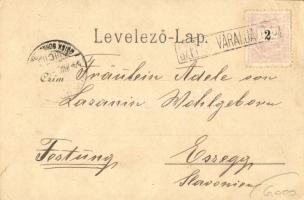 Levelező-Lap.
2
Fräulein Adele von
Lasanin Wohlgeborn
Festung
Essegg
Slavonien
6000